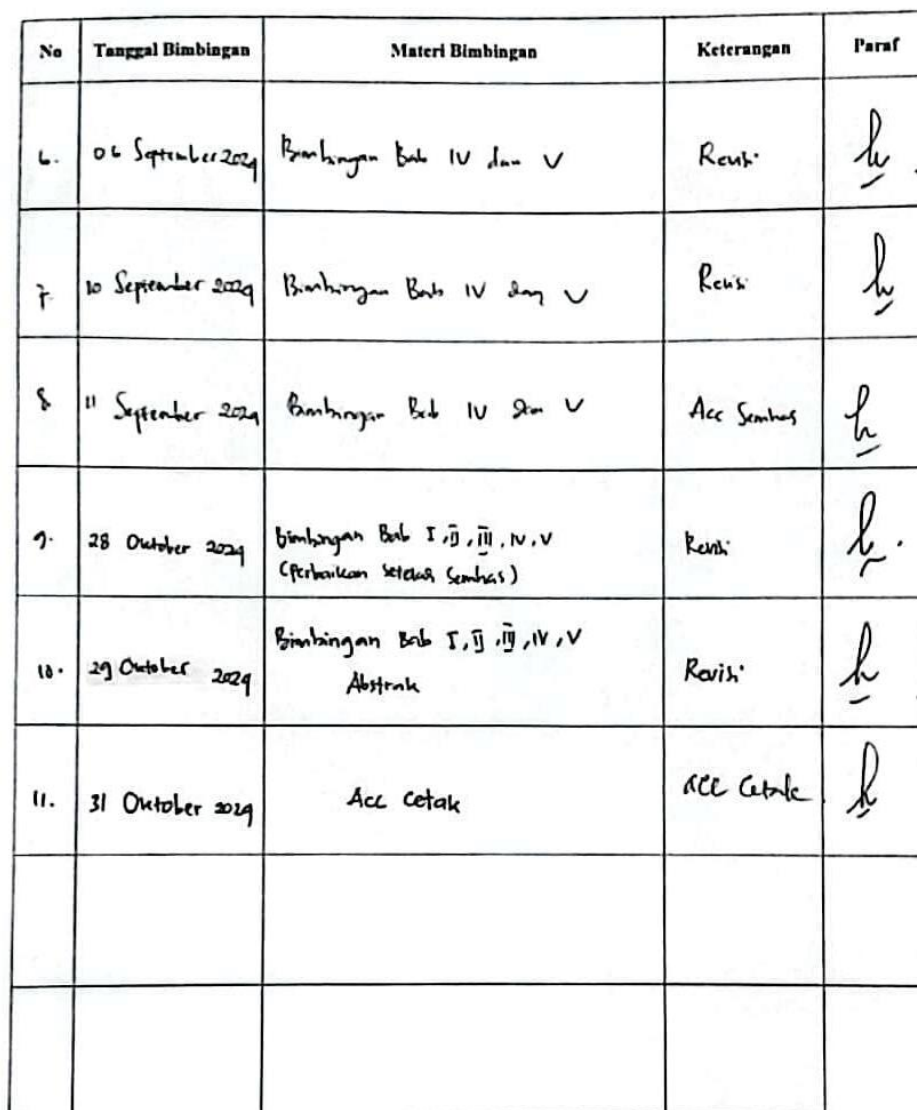 No Tanggal Bimbingan Materi Bimbingan Keterangan Paraf
6. 06 September 2024 Bimbingan Bab IV dan V Revisi
7. 10 September 2024 Bimbingan Bab IV dan V Revisi
8 11 September 2024 Bimbingan Bab IV dan V Acc Semhas
9. 28 Oktober 2024 Bimbingan Bab I, II, III, IV, V Revisi
(Perbaikan setelah Semhas)
Bimbingan Bab I, II, III, IV, V
10. 29 Oktober 2024 Abstrak Revisi
11. 31 Oktober 2024 Acc Cetak ACC Cetak